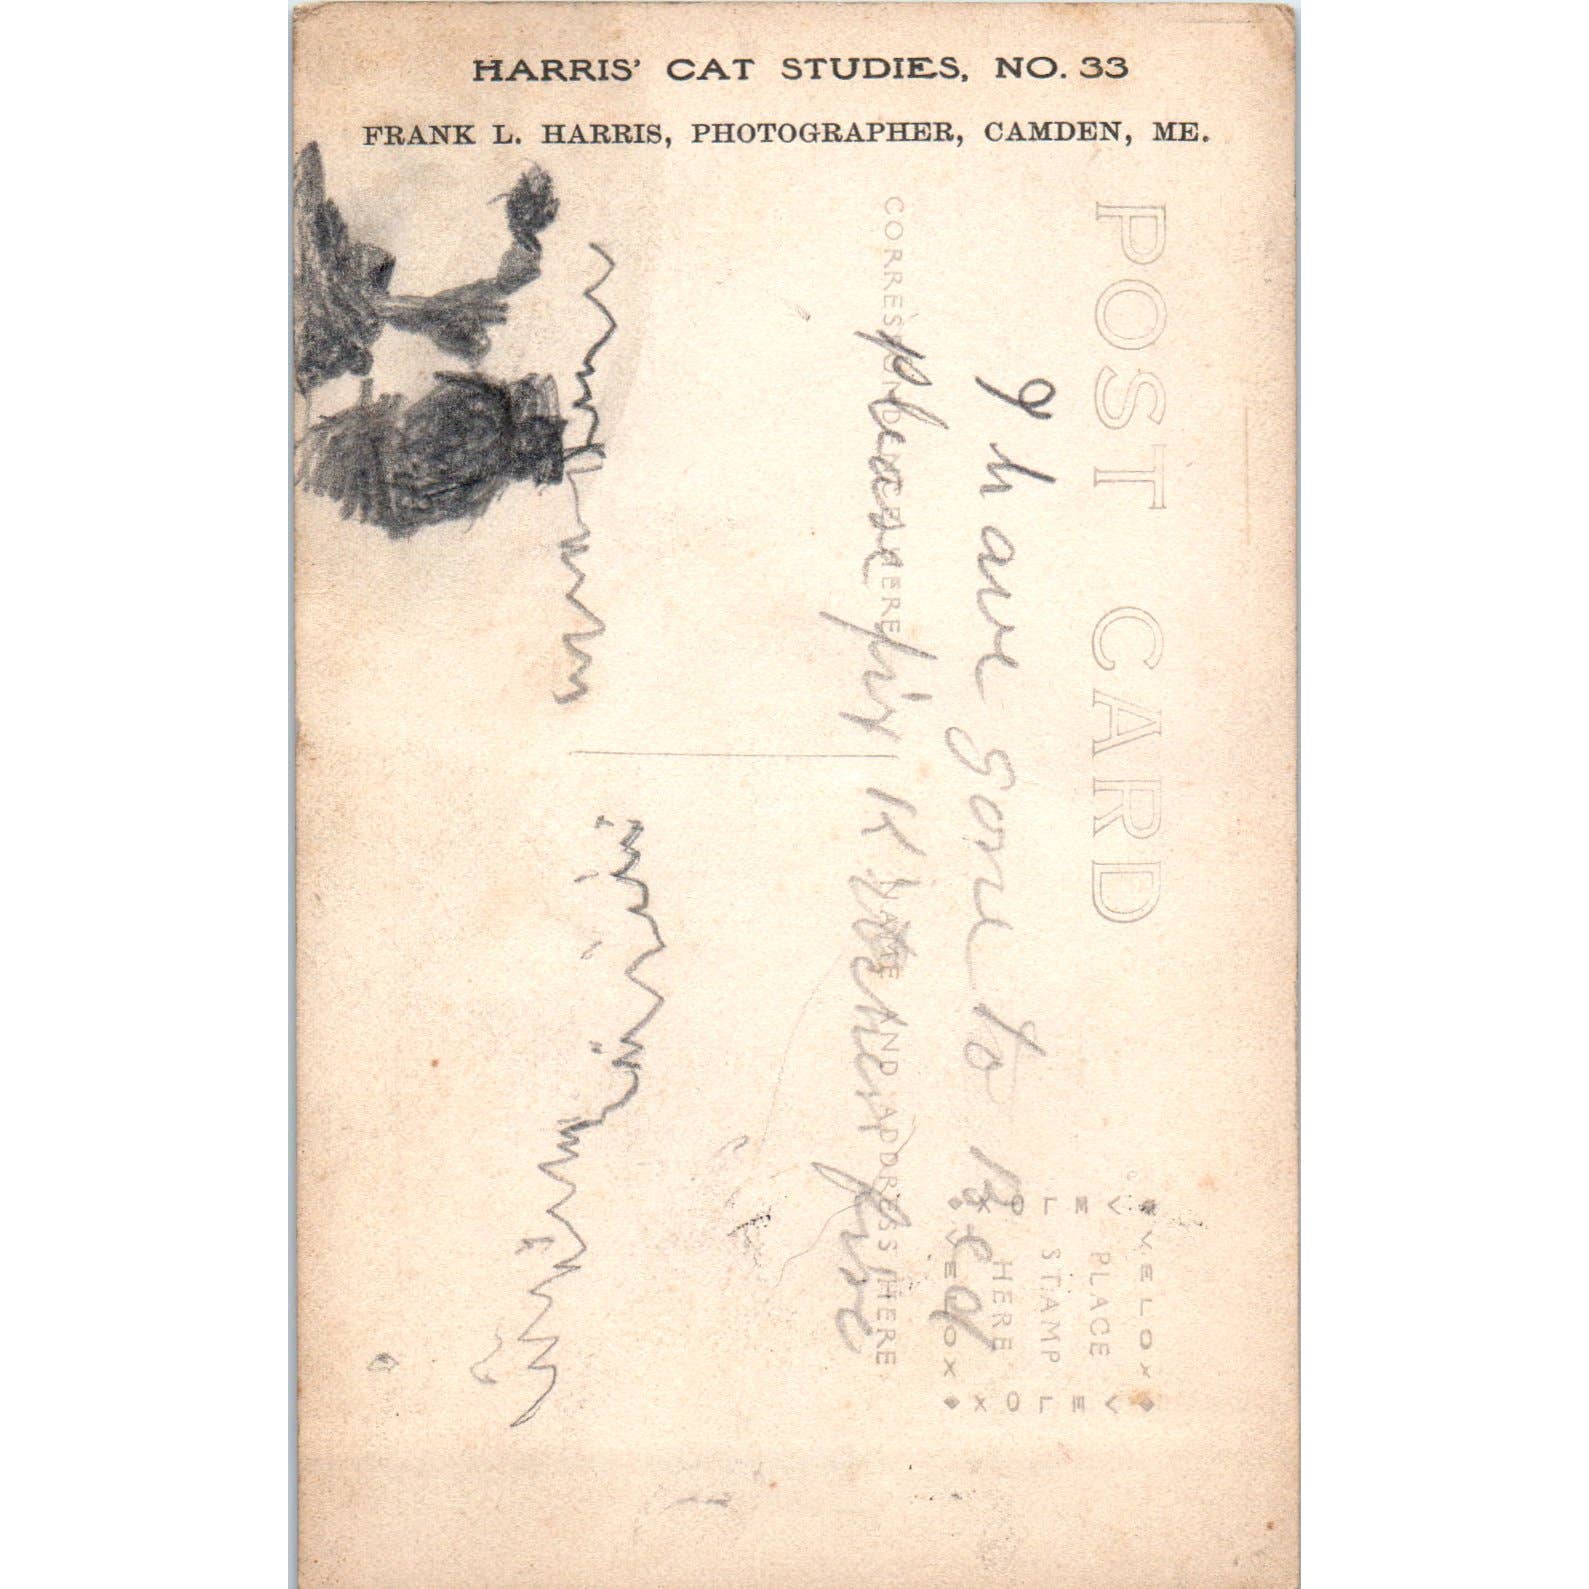 HARRIS' CAT STUDIES, NO. 33
FRANK L. HARRIS, PHOTOGRAPHER, CAMDEN, ME.
POST CARD
CORRESPONDENCE HERE
NAME AND ADDRESS HERE
VELOX
PLACE
STAMP
HERE
VELOX
VELOX
VELOX
I have gone to Bed
please fix
fire